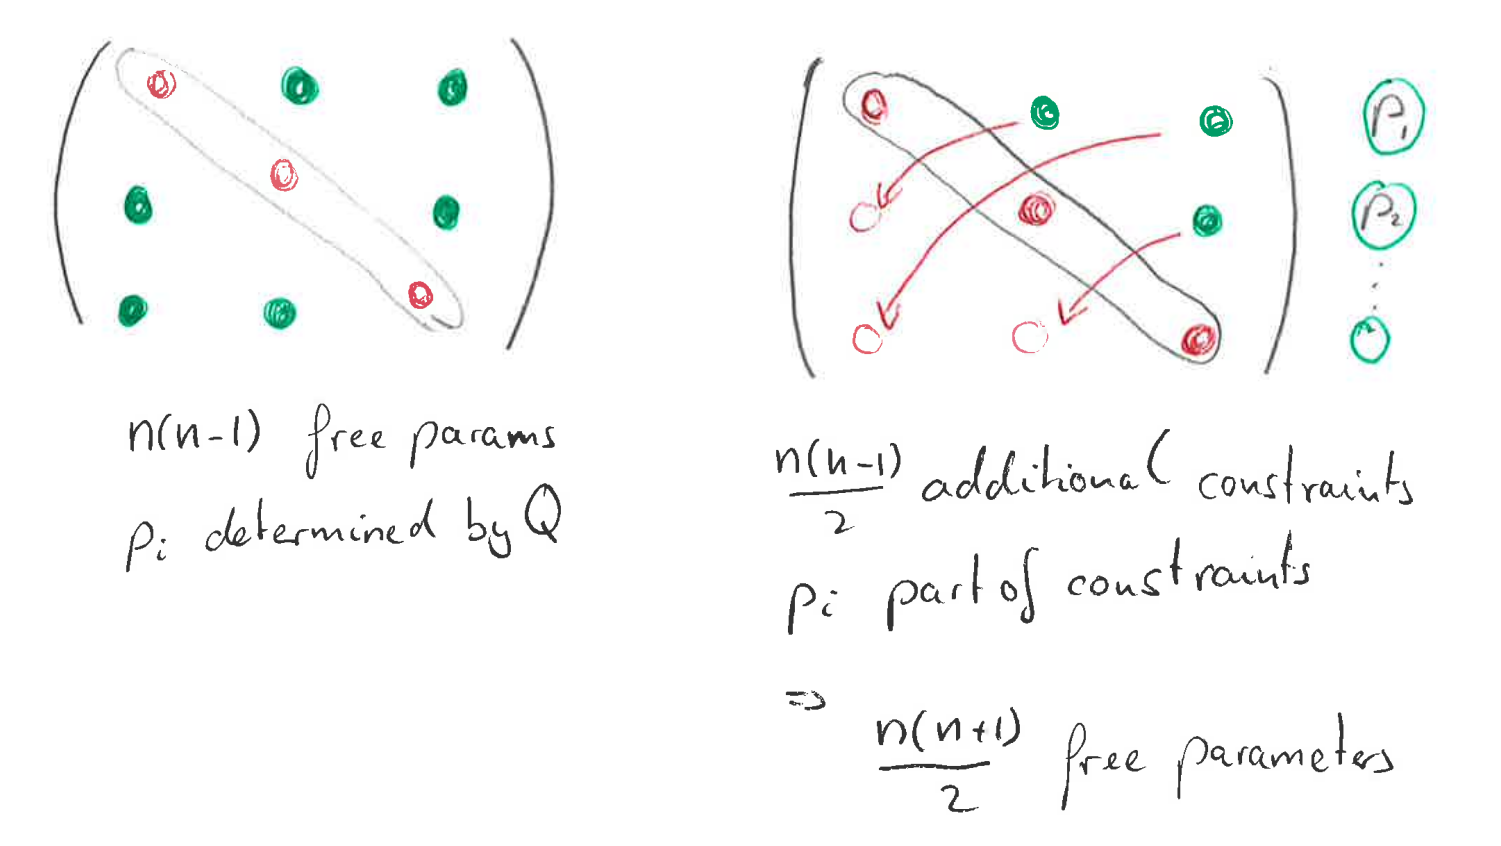 p₁
p₂
n(n-1) free params
pi determined by Q
n(n-1)/2 additional constraints
pi part of constraints
⇒
n(n+1)/2 free parameters